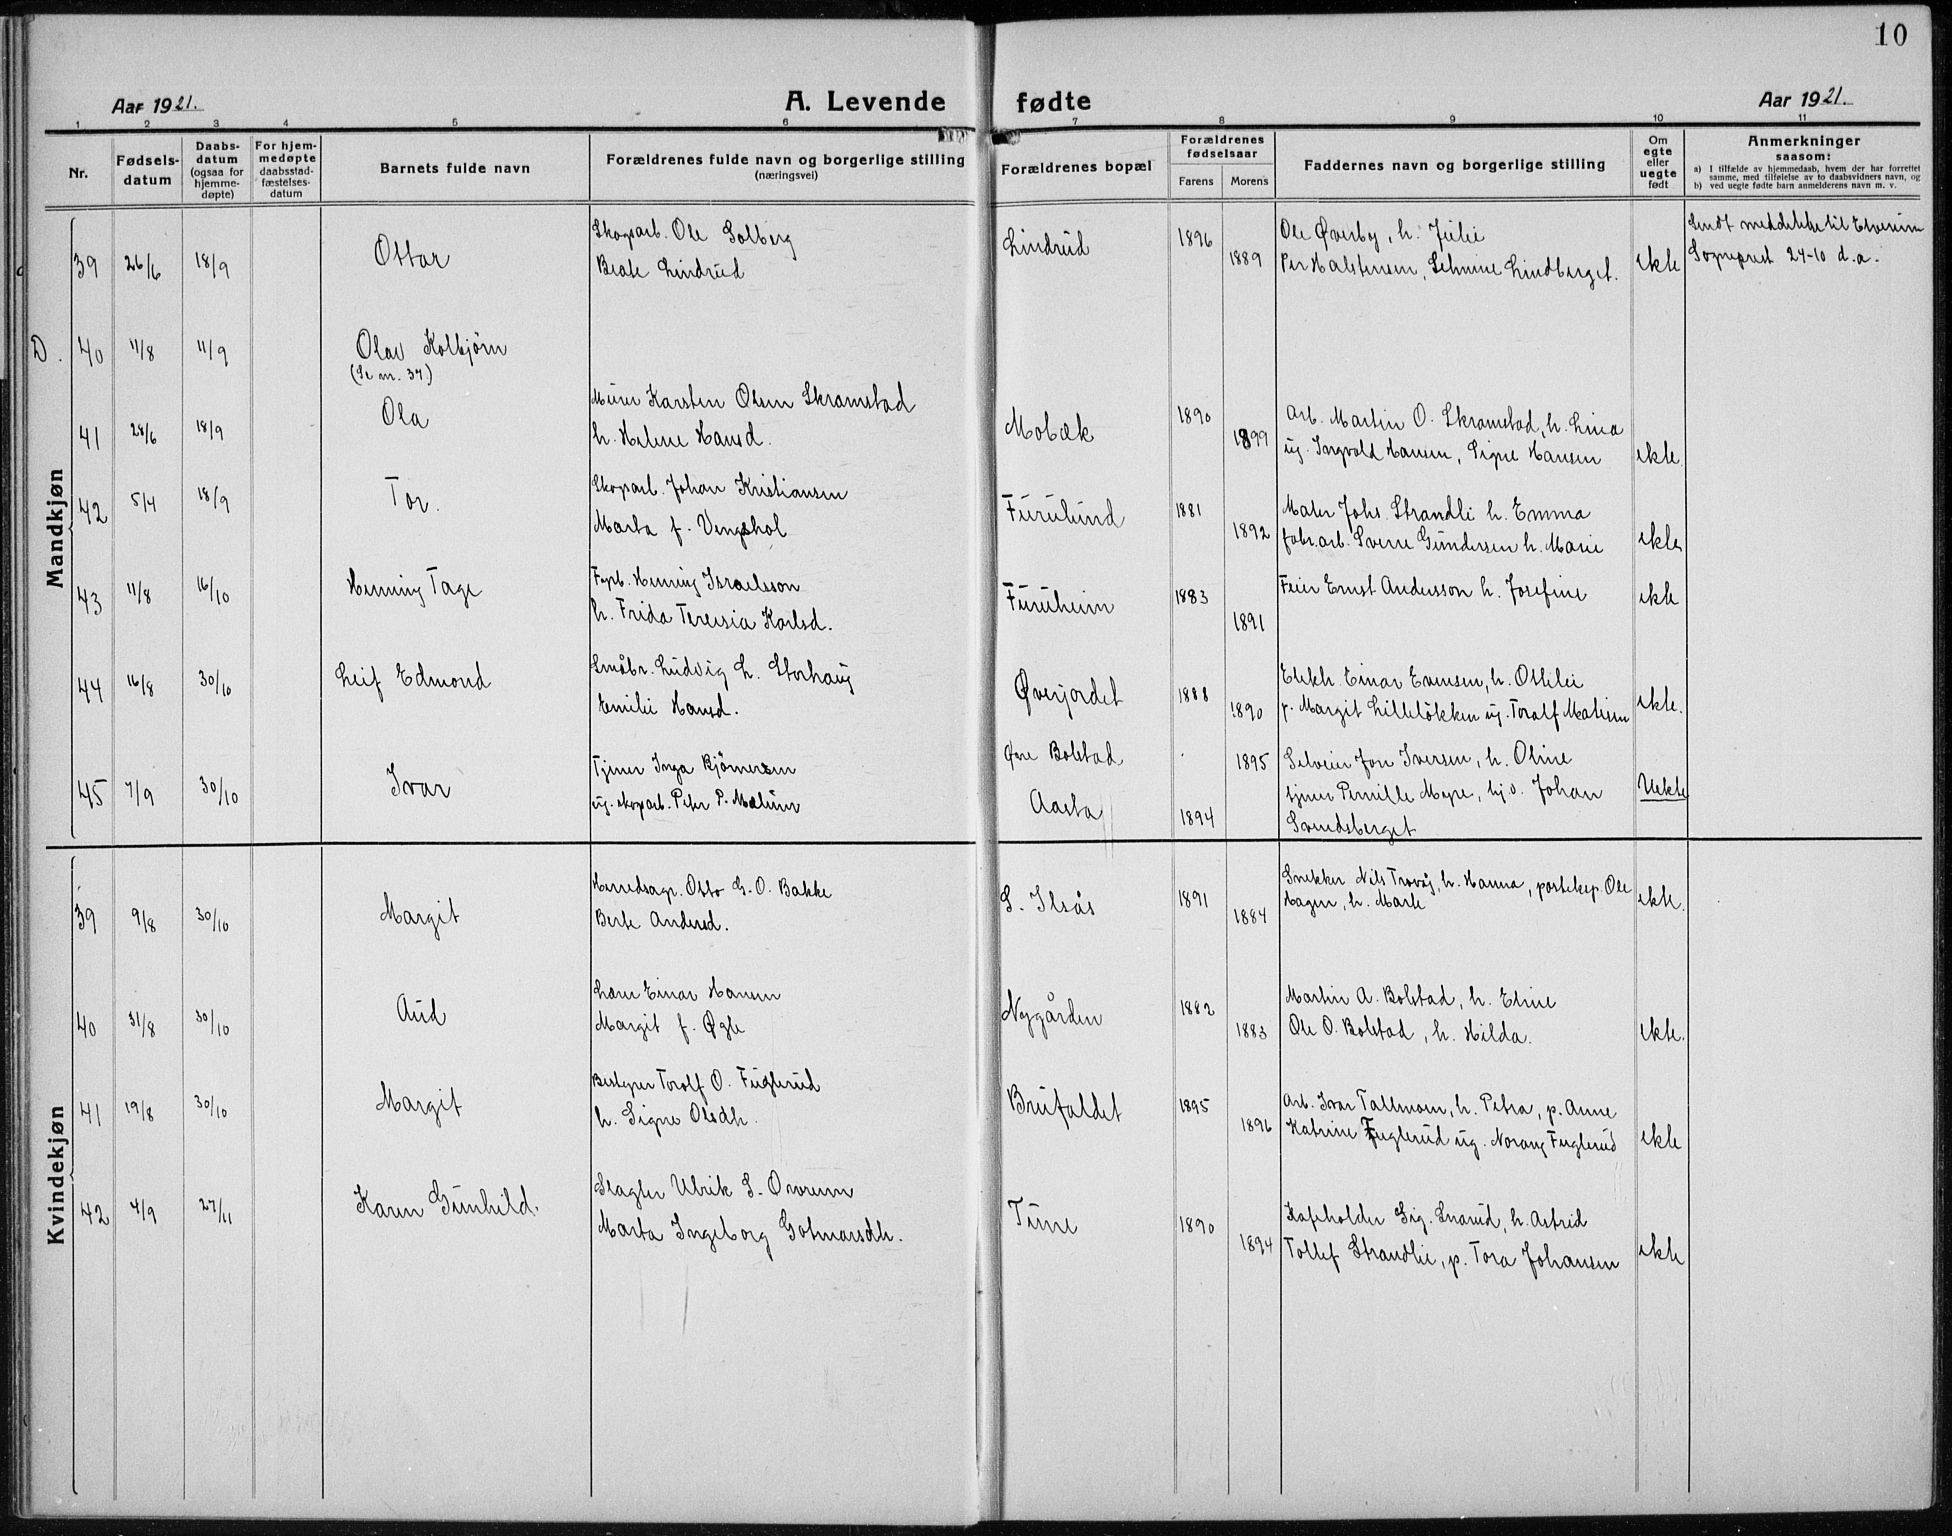 10
Aar 1921.
A. Levende fødte
Aar 1921.
1 2 3 4 5 6 7 8 9 10 11
Nr.
Fødsels-
datum
Daabs-
datum
(ogsaa for
hjemme-
døpte)
For hjem-
medøpte
daabsstad-
fæstelses-
datum
Barnets fulde navn
Forældrenes fulde navn og borgerlige stilling
(næringsvei)
Forældrenes bopæl
Forældrenes
fødselsaar
Farens Morens
Faddernes navn og borgerlige stilling
Om
egte
eller
uegte
født
Anmerkninger
saasom:
a) I tilfælde av hjemmedaab, hvem der har forrettet
samme, med tilføielse av to daabsvidners navn, og
b) ved uegte fødte barn anmelderens navn m. v.
Mandkjøn
39 26/6 18/9 Ottar
Skogsarb. Ole Solberg
Beate Lindrud
Lindrud 1896 1889
Ole Øverby, h. Julie
Per Halstensen, Selmine Lindberget.
ekte
Sendt meddelelse til Elverum
Sogneprest 24-10 d.a.
D. 40 11/8 11/9 Olav Kolbjørn
(Se nr. 37.)
41 28/6 18/9 Ola
Murer Karsten Olsen Skramstad
h. Helene Hansd.
Mobæk 1890 1899
Arb. Martin O. Skramstad, h. Lina
ug. Ingvald Hansen, Signe Hansen
ekte.
42 5/4 18/9 Tor.
Skogsarb. Johan Kristiansen
Marta f. Vengshol
Furulund 1881 1892
Maler Johs. Strandli h. Emma
fabr.arb. Sverre Gundersen h. Marie
ekte
43 11/8 16/10 Henning Tage
Henning Israelsson
h. Frida Teresia Karlsd.
Furuheim 1883 1891
Feier Ernst Andersson h. Josefine
ekte
44 16/8 30/10 Leif Edmond
Småbr. Ludvig L. Storhaug
Emilie Hansd.
Øverjordet 1888 1890
Elektr. Einar Evensen, h. Ottilie
p. Margit Lilleløkken ug. Toralf Matisen
ekte.
45 7/9 30/10 Ivar
Tjener Inga Bjørnersen
ug. skogarb. Peter P. Mælum
Øvre Bolstad 1895
Aasta 1894
Selveier Jon Iversen, h. Oline
tjener Pernille Myre, Johan
Svendsberget
Uekte
Kvindekjøn
39 9/8 30/10 Margit
Herredsagr. Otto G. O. Bakke
Berte Andersd.
S. Ilsås 1891 1884
Snekker Nils Trovåg, h. Hanna, posteksp. Ole
Hagen, h. Marte
ekte.
40 31/8 30/10 Aud
Lærer Einar Hansen
Margit f. Øgle
Nygården 1882 1883
Martin A. Bolstad, h. Eline
Ole O. Bolstad, h. Hilda.
ekte.
41 19/8 30/10 Margit
Bestyrer Torolf O. Fuglerud
h. Signe Olsdtr.
Brufaldet 1895 1896
Arb. Ivar Tallmoen, h. Petra, p. Anne
Katrine Fuglerud ug. Norang Fuglerud
ekte
42 4/9 27/11 Karen Gunhild.
Slagter Ulrik S. Overum
Marta Ingeborg Gotmarsdtr.
Tune 1890 1894
Kafeholder Sig. Snarud, h. Astrid
Tollef Strandlie, p. Tora Johansen
ekte